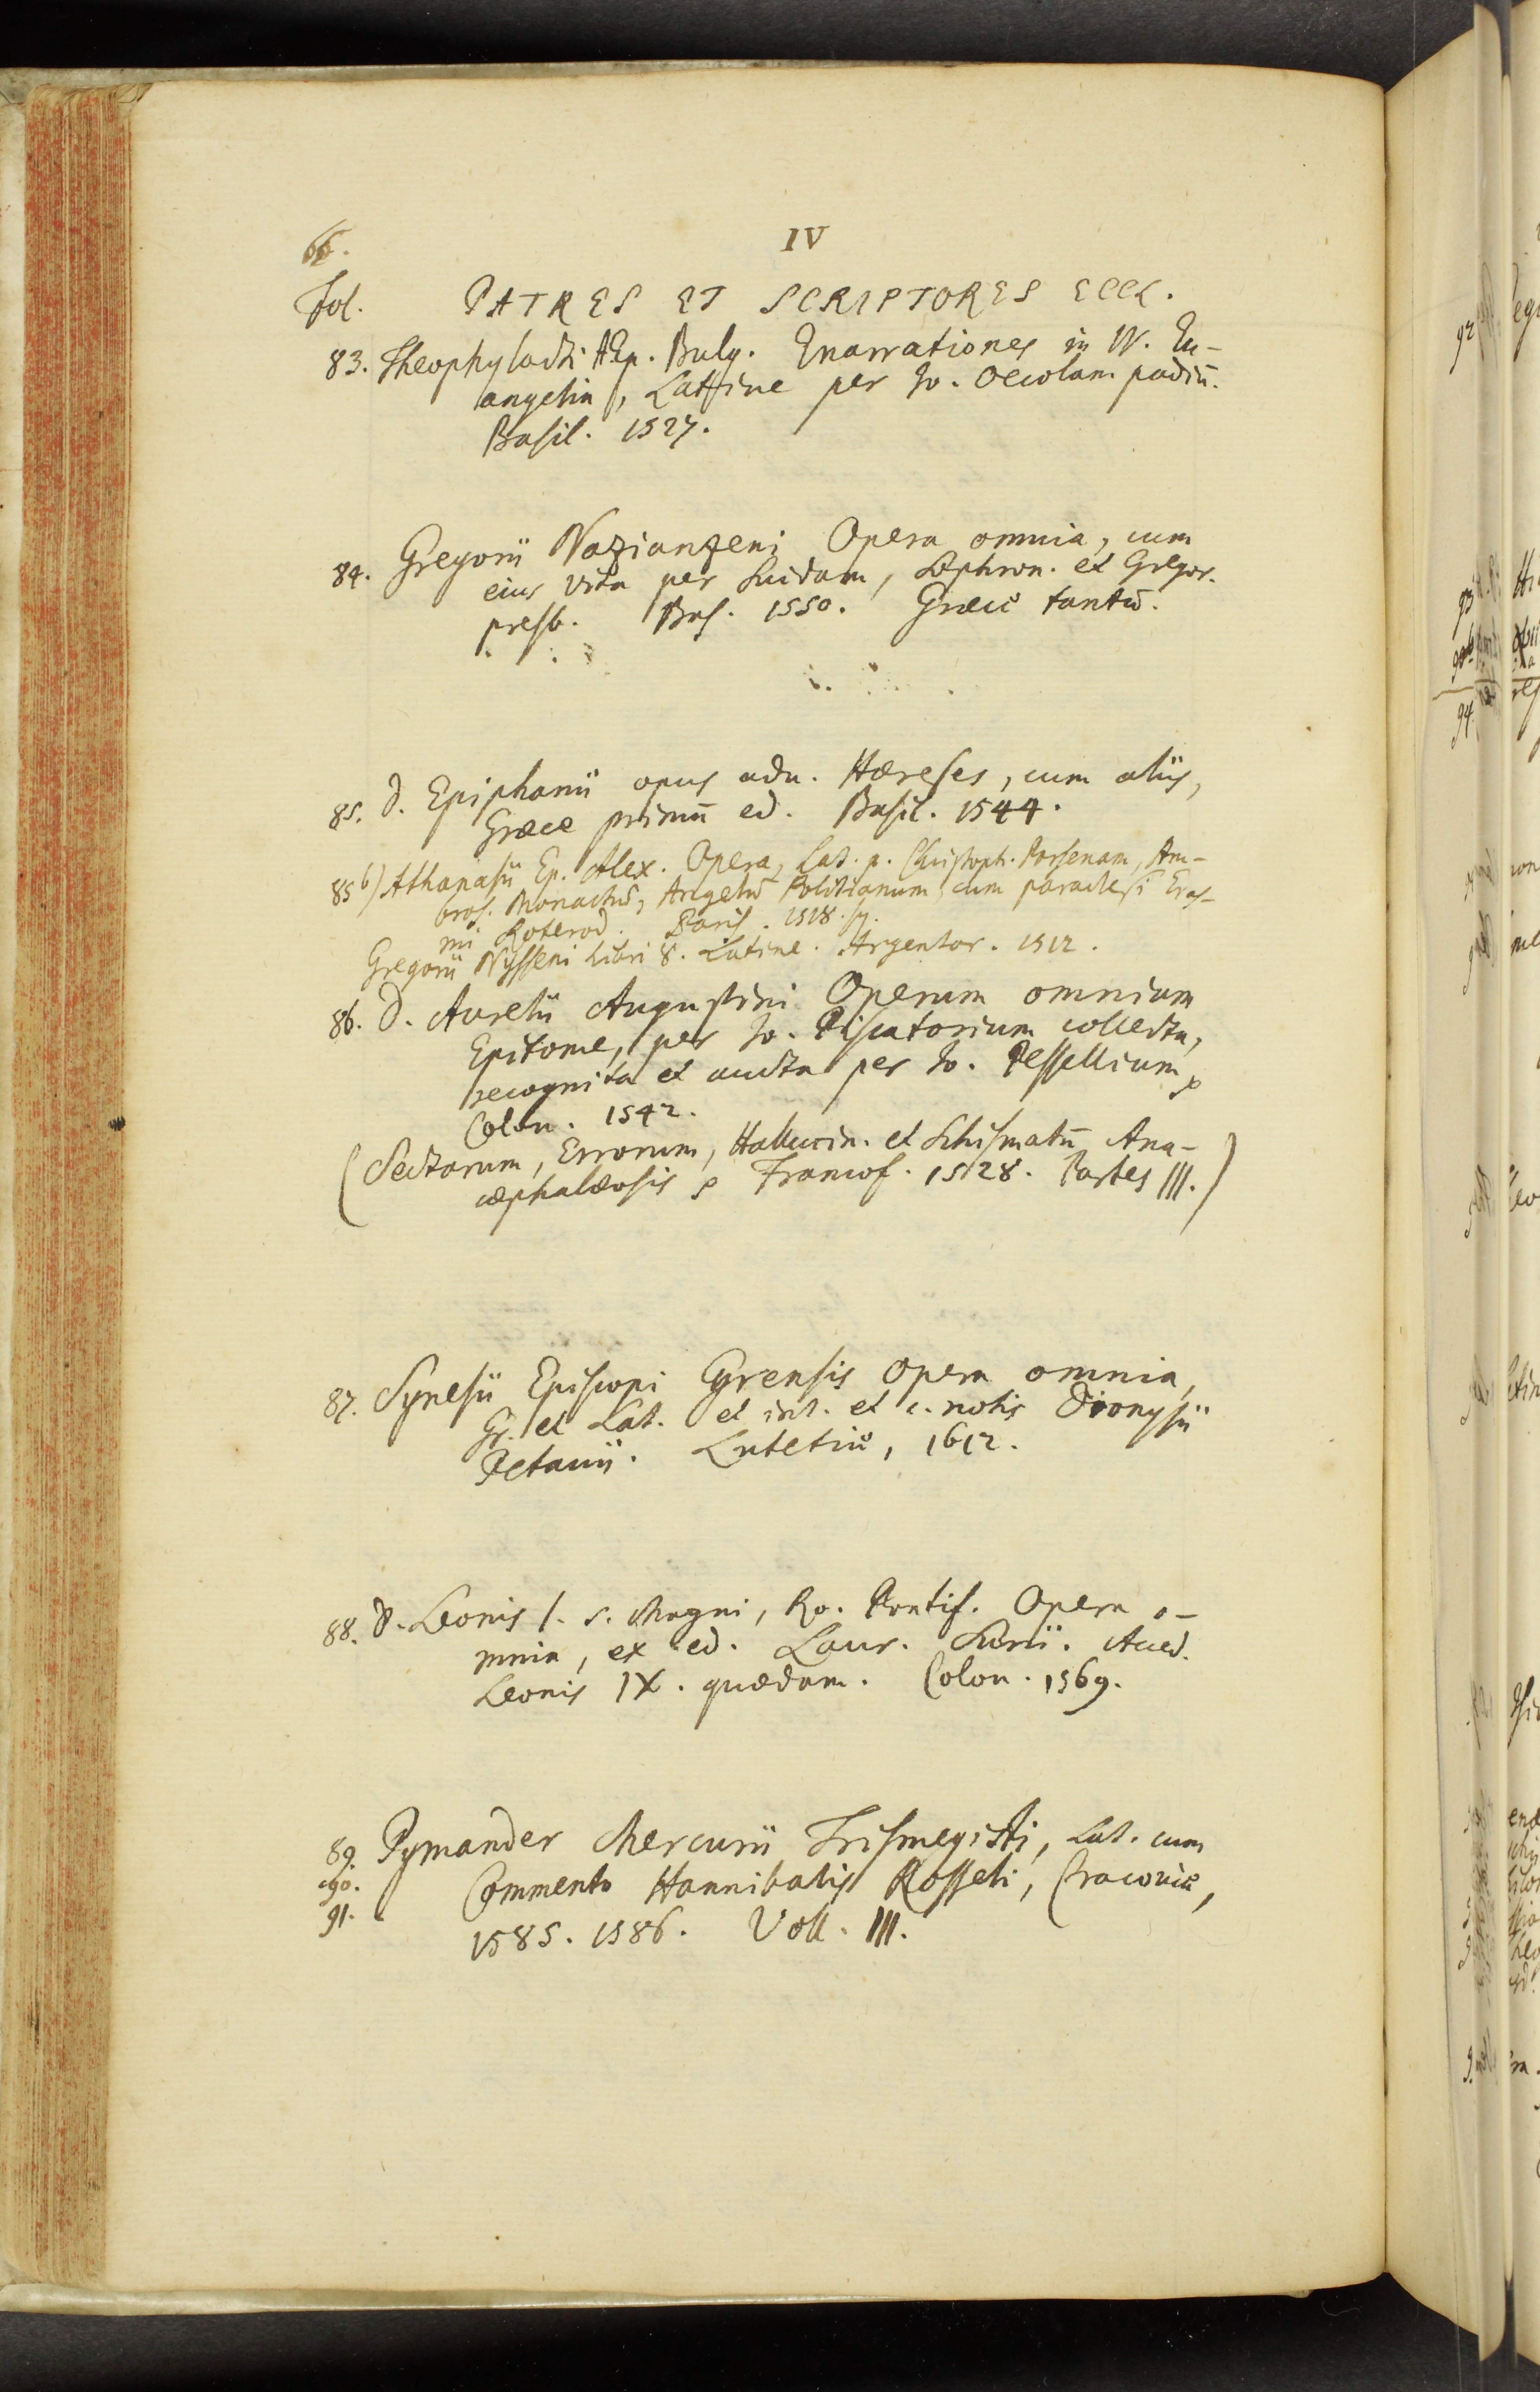 66.
IV
Fol. PATRES ET SCRIPTORES ECCL.
83. Theophylacti AEp. Bulg. Enarrationes in IV. Eu-
angelia, Latine per Jo. Oecolampadiū.
Basil. 1527.
84. Gregorii Nazianzeni Opera omnia, cum
eius vita per Suidam, Sophron. et Gregor.
presb. Bas. 1550. Græcè tantū.
85. D. Epiphanii opus adu. Hæreses, cum aliis,
Græce primū ed. Basil. 1544.
85 b) Athanasii Ep. Alex. Opera, Lat. p. Christoph. Porsenam, Am-
bros. Monachū, Angelū Politianum, cum paraclesi Eras-
mi Roterod. Paris. 1518. sq.
Gregorii Nysseni Libri 8. Latine. Argentor. 1512.
86. D. Aurelii Augustini Operum omnium
Epitome, per Jo. Piscatorium collecta,
recognita et aucta per Jo. Pessellium
Colon. 1542.
(Sectarum, Errorum, Hallucin. et Schismatū Ana-
cephalæosis Francof. 1528. Partes III.)
87. Synesii Episcopi Cyrensis Opera omnia,
Gr. et Lat. et int. et c. notis Dionysii
Petauii. Lutetiæ, 1612.
88. D. Leonis I. s. Magni, Ro. Pontif. Opera o-
mnia, ex ed. Laur. Surii. Acced.
Leonis IX. quædam. Colon. 1569.
89. Pymander Mercurii Trismegisti, Lat. cum
90. Commento Hannibalis Rosseli, Cracoviæ,
91. 1585. 1586. Voll. III.
92
93
94